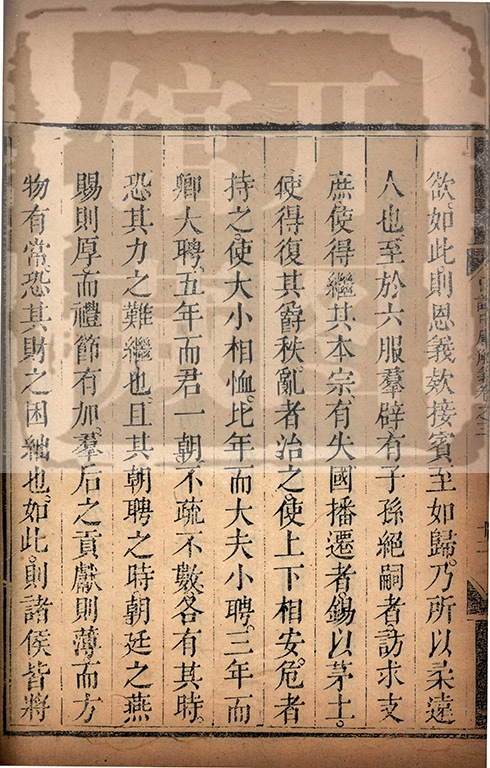 欲。如此則恩義欵接賓至如歸。乃所以柔遠
人也至於六服羣辟有子孫絕嗣者訪求支
庶使得繼其本宗有失國播遷者。錫以茅土。
使得復其爵秩亂者治之使上下相安危者
持之使大小相恤比年而大夫小聘。三年而
卿大聘五年而君一朝不疏不數各有其時。
恐其力之難繼也且其朝聘之時朝廷之燕
賜則厚而禮節有加羣后之貢獻則薄而方
物有常恐其財之困絀也如此則諸侯皆將